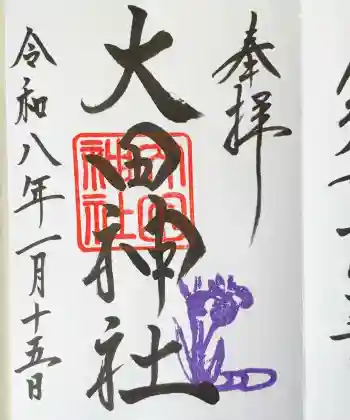 奉拝
大田神社
大田神社
令和八年一月十五日